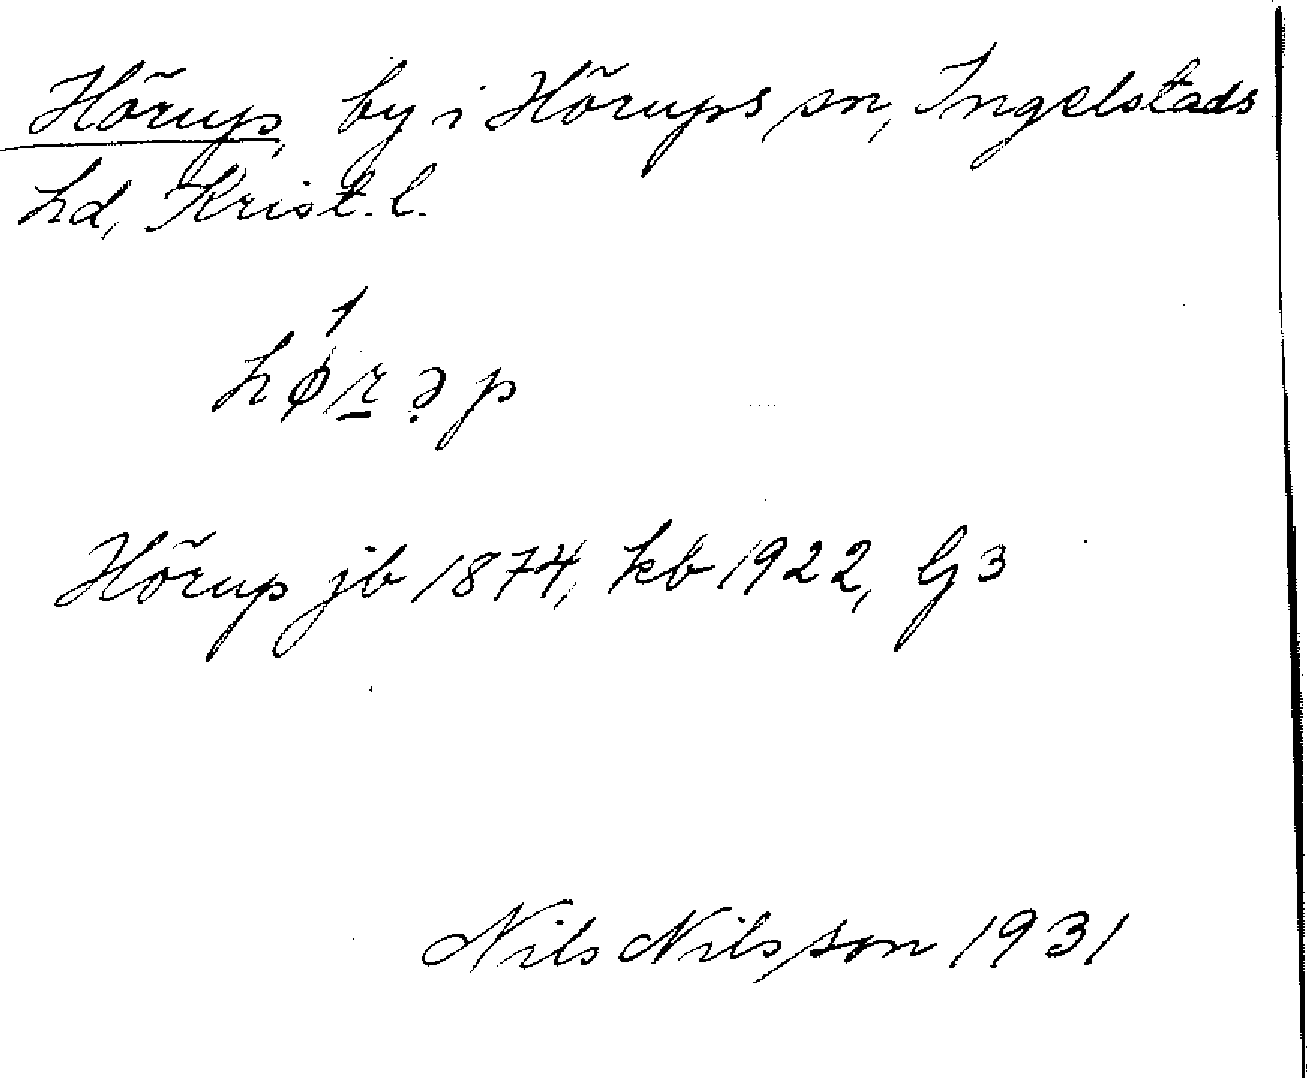 Hörup, by i Hörups sn, Ingelstads
hd, Krist. l.
hǿr̠ə̣p
Hörup jb 1874, kb 1922, G3
Nils Nilsson 1931